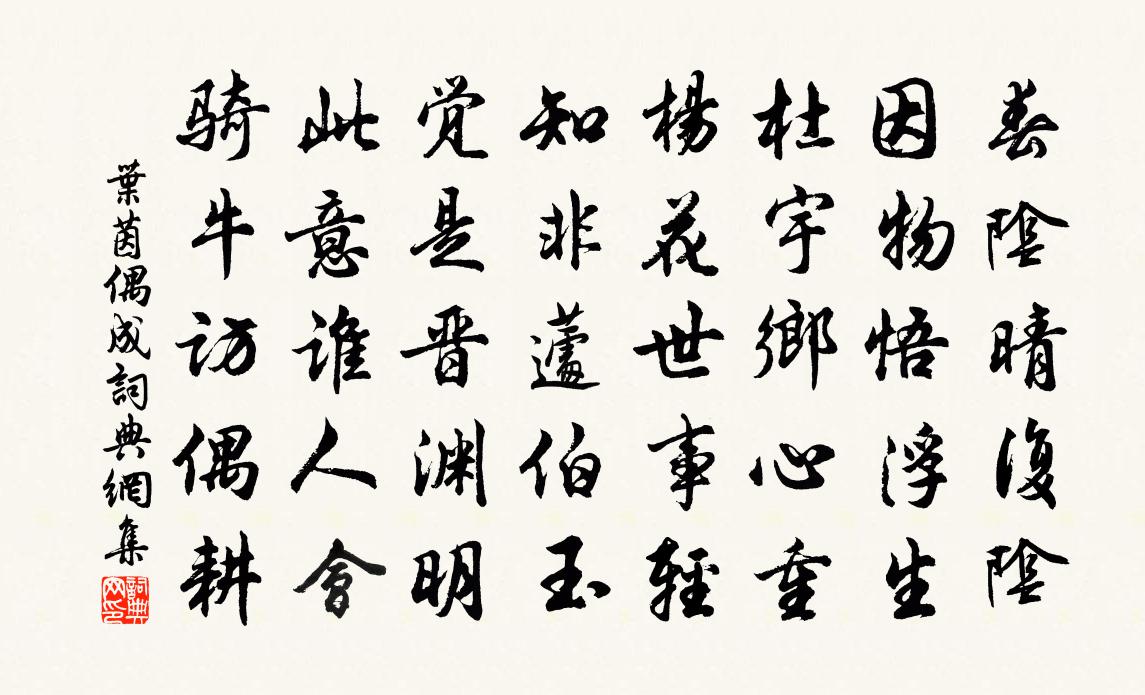 春陰晴復陰
因物悟浮生
杜宇鄉心重
楊花世事輕
知非蘧伯玉
覚是晋渊明
此意誰人會
骑牛访偶耕
葉茵偶成詞典網集
詞典网印